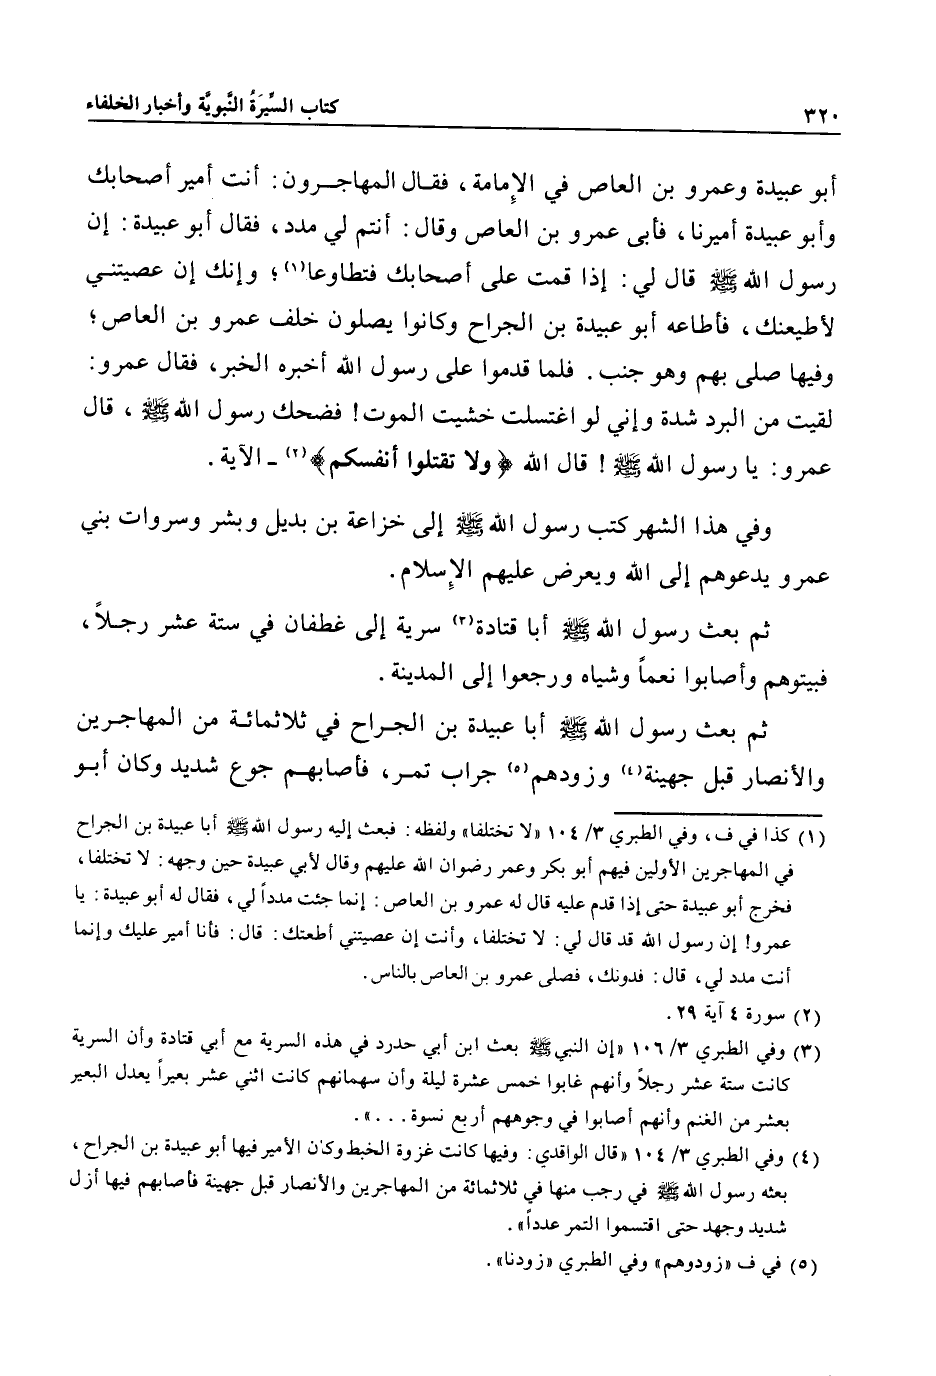 ٣٢٠ كتاب السِّيرَةُ النَّبويَّة وأخبار الخلفاء
أبو عبيدة وعمرو بن العاص في الإمامة، فقال المهاجرون: أنت أمير أصحابك
وأبو عبيدة أميرنا، فأبى عمرو بن العاص وقال: أنتم لي مدد، فقال أبو عبيدة: إن
رسول الله ﷺ قال لي: إذا قمت على أصحابك فتطاوعا(١)؛ وإنك إن عصيتني
لأطيعنك، فأطاعه أبو عبيدة بن الجراح وكانوا يصلون خلف عمرو بن العاص؛
وفيها صلى بهم وهو جنب. فلما قدموا على رسول الله أخبره الخبر، فقال عمرو:
لقيت من البرد شدة وإني لو اغتسلت خشيت الموت! فضحك رسول الله ﷺ، قال
عمرو: يا رسول الله ﷺ! قال الله ﴿ولا تقتلوا أنفسكم﴾(٢) ـ الآية.
وفي هذا الشهر كتب رسول الله ﷺ إلى خزاعة بن بديل وبشر وسروات بني
عمرو يدعوهم إلى الله ويعرض عليهم الإسلام.
ثم بعث رسول الله ﷺ أبا قتادة(٣) سرية إلى غطفان في ستة عشر رجلاً،
فبيتوهم وأصابوا نعماً وشياه ورجعوا إلى المدينة.
ثم بعث رسول الله ﷺ أبا عبيدة بن الجراح في ثلاثمائة من المهاجرين
والأنصار قبل جهينة(٤) وزودهم(٥) جراب تمر، فأصابهم جوع شديد وكان أبو
(١) كذا في ف، وفي الطبري ٣/ ١٠٤ «لا تختلفا» ولفظه: فبعث إليه رسول الله ﷺ أبا عبيدة بن الجراح
في المهاجرين الأولين فيهم أبو بكر وعمر رضوان الله عليهم وقال لأبي عبيدة حين وجهه: لا تختلفا،
فخرج أبو عبيدة حتى إذا قدم عليه قال له عمرو بن العاص: إنما جئت مدداً لي، فقال له أبو عبيدة: يا
عمرو! إن رسول الله قد قال لي: لا تختلفا، وأنت إن عصيتني أطعتك: قال: فأنا أمير عليك وإنما
أنت مدد لي، قال: فدونك، فصلى عمرو بن العاص بالناس.
(٢) سورة ٤ آية ٢٩.
(٣) وفي الطبري ٣/ ١٠٦ «إن النبي ﷺ بعث ابن أبي حدرد في هذه السرية مع أبي قتادة وأن السرية
كانت ستة عشر رجلاً وأنهم غابوا خمس عشرة ليلة وأن سهمانهم كانت اثني عشر بعيراً يعدل البعير
بعشر من الغنم وأنهم أصابوا في وجوههم أربع نسوة...».
(٤) وفي الطبري ٣/ ١٠٤ «قال الواقدي: وفيها كانت غزوة الخبط وكان الأمير فيها أبو عبيدة بن الجراح،
بعثه رسول الله ﷺ في رجب منها في ثلاثمائة من المهاجرين والأنصار قبل جهينة فأصابهم فيها أزل
شديد وجهد حتى اقتسموا التمر عدداً».
(٥) في ف «زودوهم» وفي الطبري «زودنا».